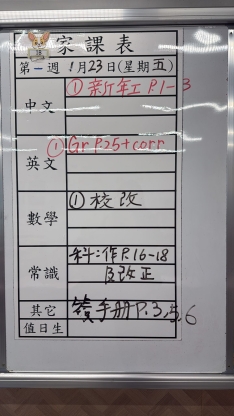 家課表
第一週 1月23日(星期五)
中文 ①新年工 P.1-3
英文 ①Gr P.25+corr
數學 ①校改
常識 科:作P.16-18
改正
其它 簽手册P.3,5,6
值日生